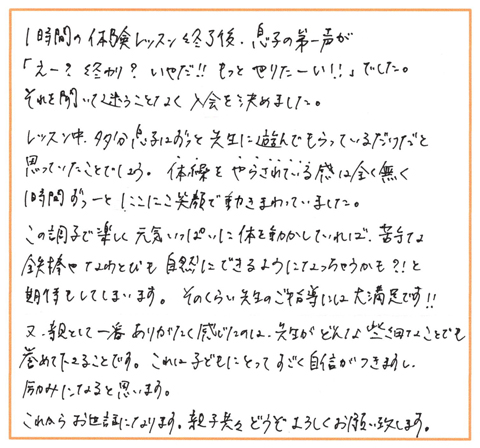 1時間の体験レッスン終了後、息子の第一声が
「えー？終わり？いやだ!!もっとやりたーい!!」でした。
それを聞いて迷うことなく入会を決めました。
レッスン中、多分息子はずっと先生に遊んでもらっているだけだと
思っていたことでしょう。体操をやらされている感は全く無く
1時間ずーっとにこにこ笑顔で動きまわっていました。
この調子で楽しく元気いっぱいに体を動かしていれば、苦手な
鉄棒やなわとびも自然にできるようになっちゃうかも?!と
期待をしてしまいます。そのくらい先生のご指導には大満足です!!
又、親として一番ありがたく感じたのは、先生がどんな些細なことでも
誉めて下さることです。これは子どもにとってすごく自信がつきますし、
励みになると思います。
これからお世話になります。親子共々どうぞよろしくお願い致します。